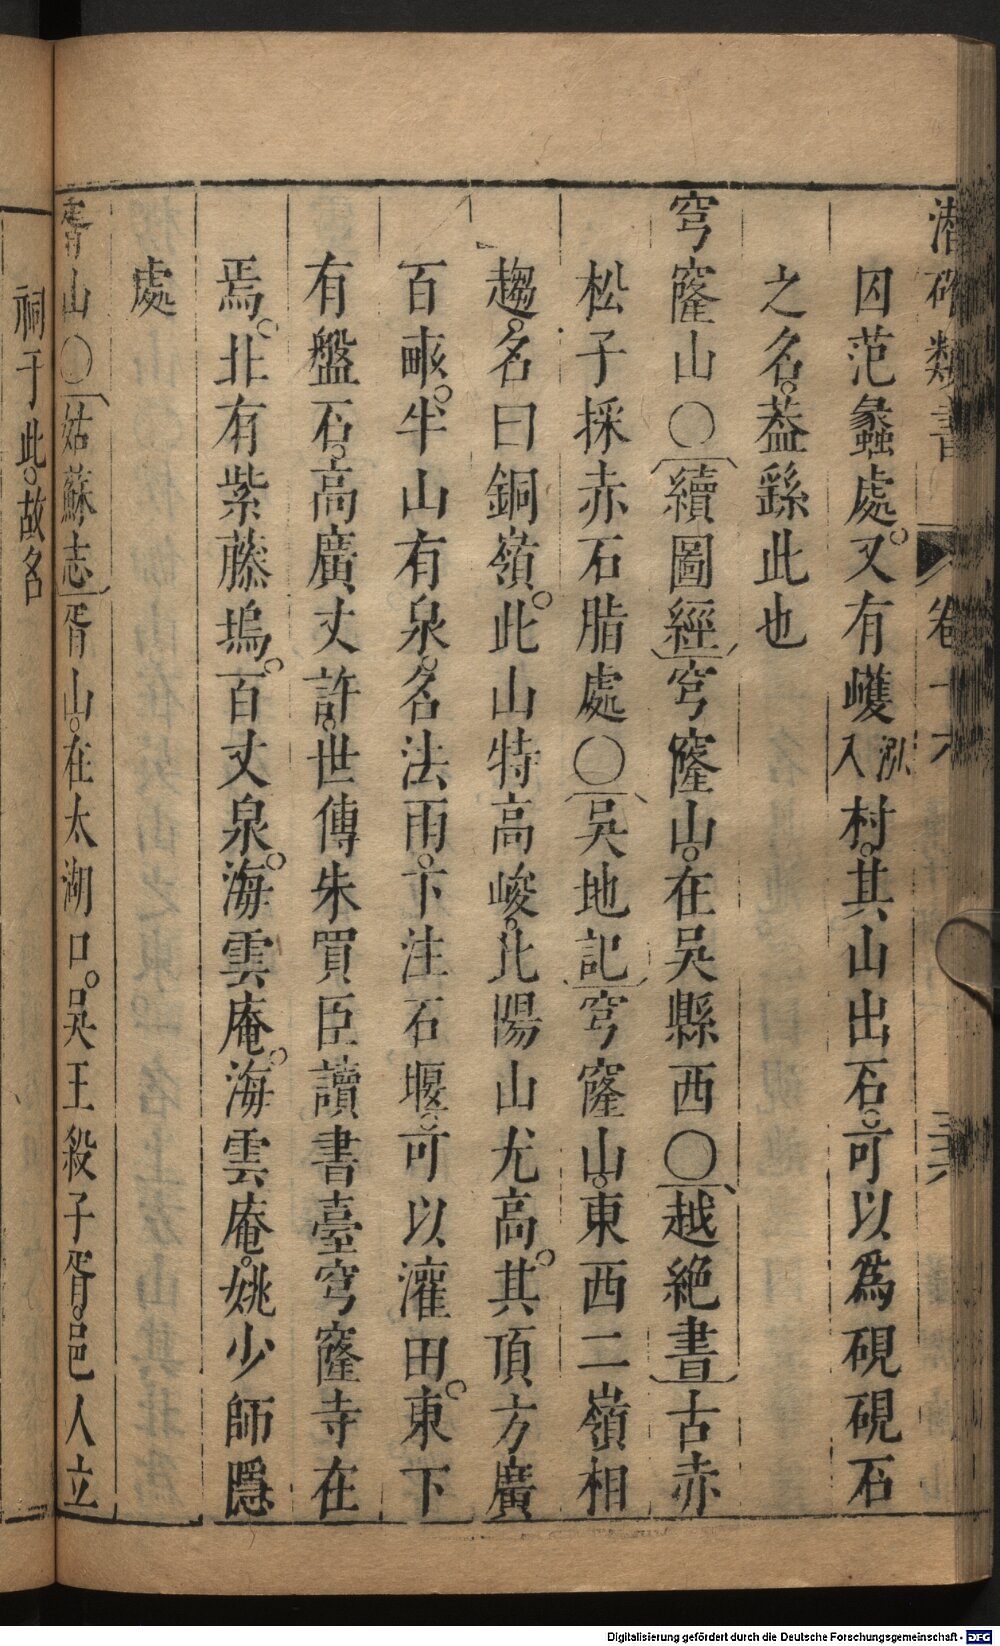 潛確類書 卷二十六 三六
囚范蠡處。又有㠛入泓村。其山出石。可以爲硯硯石
之名。葢繇此也
穹窿山〇續圖經穹窿山。在吳縣西〇越絶書古赤
松子採赤石脂處〇吳地記穹窿山。東西二嶺相
趨。名曰銅嶺。此山特高峻。比陽山尤高。其頂方廣
百畞。半山有泉。名法雨。下注石堰。可以灌田。東下
有盤石。高廣丈許。世傳朱買臣讀書臺穹窿寺在
焉。北有紫藤塢。百丈泉。海雲庵。海雲庵。姚少師隱
處
胥山〇姑蘇志胥山。在太湖口。吳王殺子胥。邑人立
祠于此。故名
Digitalisierung gefördert durch die Deutsche Forschungsgemeinschaft - DFG